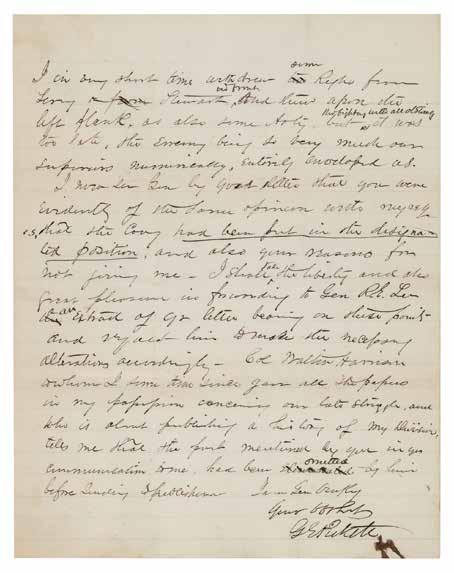 I in very short time withdrew some Regts from
Terry & from Stewart, and threw upon the
left flank, as also some Arty, but it was
too late, the Enemy being so very much our
superiors numerically, entirely enveloped us.
I now see Gen by your letter that you were
evidently of the same opinion with myself
that the Cavy had been put in the designa-
ted position, and also your reasons for
not joining me - I shall take the liberty and the
great pleasure in forwarding to Gen R.E. Lee
an extract of yr letter bearing on these points
and request him to make the necessary
alterations accordingly - Col Walter Harrison
to whom I some time since gave all the papers
in my possession concerning our late struggle, and
who is about publishing a history of my Division,
tells me that the part mentioned by you in yr
communication to me, had been omitted by him
before sending to publishers I am Gen
Your Obt Svt
G E Pickett